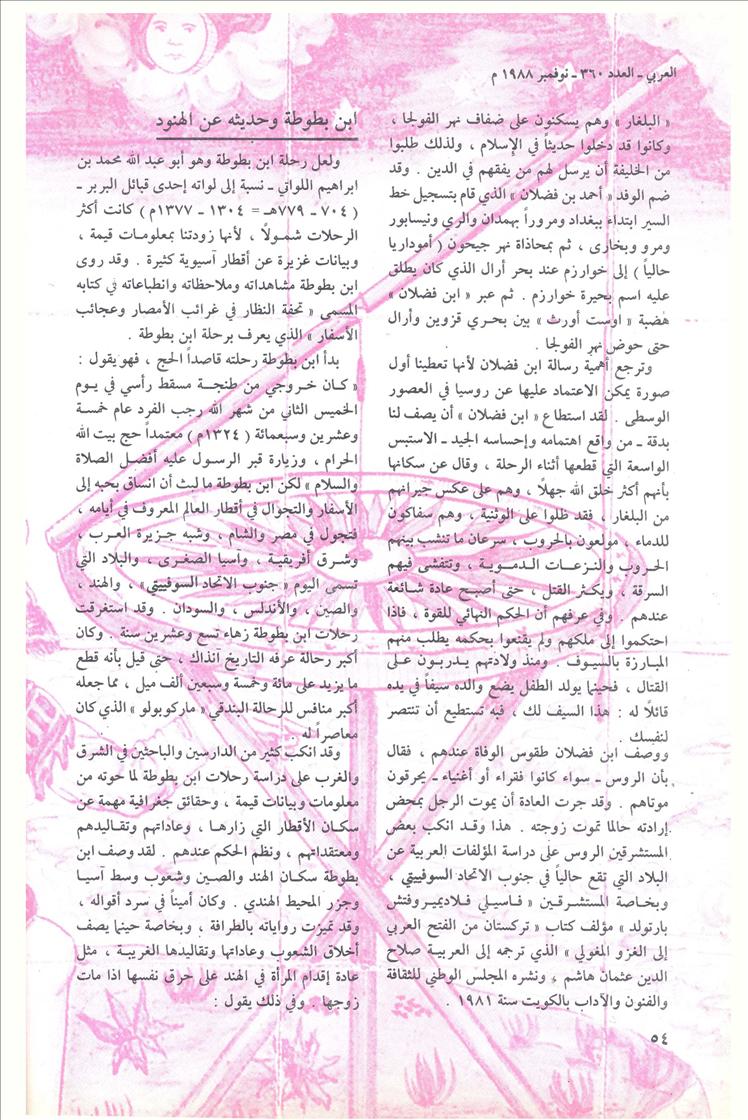 العربي ـ العدد ٣٦٠ ـ نوفمبر ١٩٨٨ م
« البلغار » وهم يسكنون على ضفاف نهر الفولجا ،
وكانوا قد دخلوا حديثاً في الإسلام ، ولذلك طلبوا
من الخليفة أن يرسل لهم من يفقههم في الدين . وقد
ضم الوفد « أحمد بن فضلان » الذي قام بتسجيل خط
السير ابتداء ببغداد ومروراً بهمدان والري ونيسابور
ومرو وبخارى ، ثم بمحاذاة نهر جيحون ( أموداريا
حالياً ) إلى خوارزم عند بحر أرال الذي كان يطلق
عليه اسم بحيرة خوارزم . ثم عبر « ابن فضلان »
هضبة « اوست أورث » بين بحري قزوين وأرال
حتى حوض نهر الفولجا .
وترجع أهمية رسالة ابن فضلان لأنها تعطينا أول
صورة يمكن الاعتماد عليها عن روسيا في العصور
الوسطى . لقد استطاع « ابن فضلان » أن يصف لنا
بدقة ـ من واقع اهتمامه وإحساسه الجيد ـ الاستبس
الواسعة التي قطعها أثناء الرحلة ، وقال عن سكانها
بأنهم أكثر خلق الله جهلاً ، وهم على عكس جيرانهم
من البلغار ، فقد ظلوا على الوثنية ، وهم سفاكون
للدماء ، مولعون بالحروب ، سرعان ما تنشب بينهم
الحروب والنزعات الدموية ، وتتفشى فيهم
السرقة ، ويكثر القتل ، حتى أصبح عادة شائعة
عندهم . وفي عرفهم أن الحكم النهائي للقوة ، فاذا
احتكموا إلى ملكهم ولم يقنعوا بحكمه يطلب منهم
المبارزة بالسيوف . ومنذ ولادتهم يدربون على
القتال ، فحينما يولد الطفل يضع والده سيفاً في يده
قائلاً له : هذا السيف لك ، فبه تستطيع أن تنتصر
لنفسك .
ووصف ابن فضلان طقوس الوفاة عندهم ، فقال
بأن الروس ـ سواء كانوا فقراء أو أغنياء ـ يحرقون
موتاهم . وقد جرت العادة أن يموت الرجل بمحض
إرادته حالما تموت زوجته . هذا وقد انكب بعض
المستشرقين الروس على دراسة المؤلفات العربية عن
البلاد التي تقع حالياً في جنوب الاتحاد السوفييتي ،
وبخاصة المستشرقين « فاسيلي فلاديميروفتش
بارتولد » مؤلف كتاب « تركستان من الفتح العربي
إلى الغزو المغولي » الذي ترجمه إلى العربية صلاح
الدين عثمان هاشم ، ونشره المجلس الوطني للثقافة
والفنون والآداب بالكويت سنة ١٩٨١ .
ابن بطوطة وحديثه عن الهنود
ولعل رحلة ابن بطوطة وهو أبو عبد الله محمد بن
ابراهيم اللواتي ـ نسبة إلى لواته إحدى قبائل البربر ـ
( ٧٠٤ ـ ٧٧٩هـ = ١٣٠٤ ـ ١٣٧٧م ) كانت أكثر
الرحلات شمولاً ، لأنها زودتنا بمعلومات قيمة ،
وبيانات غزيرة عن أقطار آسيوية كثيرة . وقد روى
ابن بطوطة مشاهداته وملاحظاته وانطباعاته في كتابه
المسمى « تحفة النظار في غرائب الأمصار وعجائب
الأسفار » الذي يعرف برحلة ابن بطوطة .
بدأ ابن بطوطة رحلته قاصداً الحج ، فهو يقول :
« كان خروجي من طنجة مسقط رأسي في يوم
الخميس الثاني من شهر الله رجب الفرد عام خمسة
وعشرين وسبعمائة ( ١٣٢٤م ) معتمداً حج بيت الله
الحرام ، وزيارة قبر الرسول عليه أفضل الصلاة
والسلام » لكن ابن بطوطة ما لبث أن انساق بحبه إلى
الأسفار والتجوال في أقطار العالم المعروف في أيامه ،
فتجول في مصر والشام ، وشبه جزيرة العرب ،
وشرق أفريقية ، وآسيا الصغرى ، والبلاد التي
تسمى اليوم « جنوب الاتحاد السوفييتي » ، والهند ،
والصين ، والأندلس ، والسودان . وقد استغرقت
رحلات ابن بطوطة زهاء تسع وعشرين سنة . وكان
أكبر رحالة عرفه التاريخ آنذاك ، حتى قيل بأنه قطع
ما يزيد على مائة وخمسة وسبعين ألف ميل ، مما جعله
أكبر منافس للرحالة البندقي « ماركوبولو » الذي كان
معاصراً له .
وقد انكب كثير من الدارسين والباحثين في الشرق
والغرب على دراسة رحلات ابن بطوطة لما حوته من
معلومات وبيانات قيمة ، وحقائق جغرافية مهمة عن
سكان الأقطار التي زارها ، وعاداتهم وتقاليدهم
ومعتقداتهم ، ونظم الحكم عندهم . لقد وصف ابن
بطوطة سكان الهند والصين وشعوب وسط آسيا
وجزر المحيط الهندي . وكان أميناً في سرد أقواله ،
وقد تميزت رواياته بالطرافة ، وبخاصة حينما يصف
أخلاق الشعوب وعاداتها وتقاليدها الغريبة ، مثل
عادة إقدام المرأة في الهند على حرق نفسها اذا مات
زوجها . وفي ذلك يقول :
٥٤